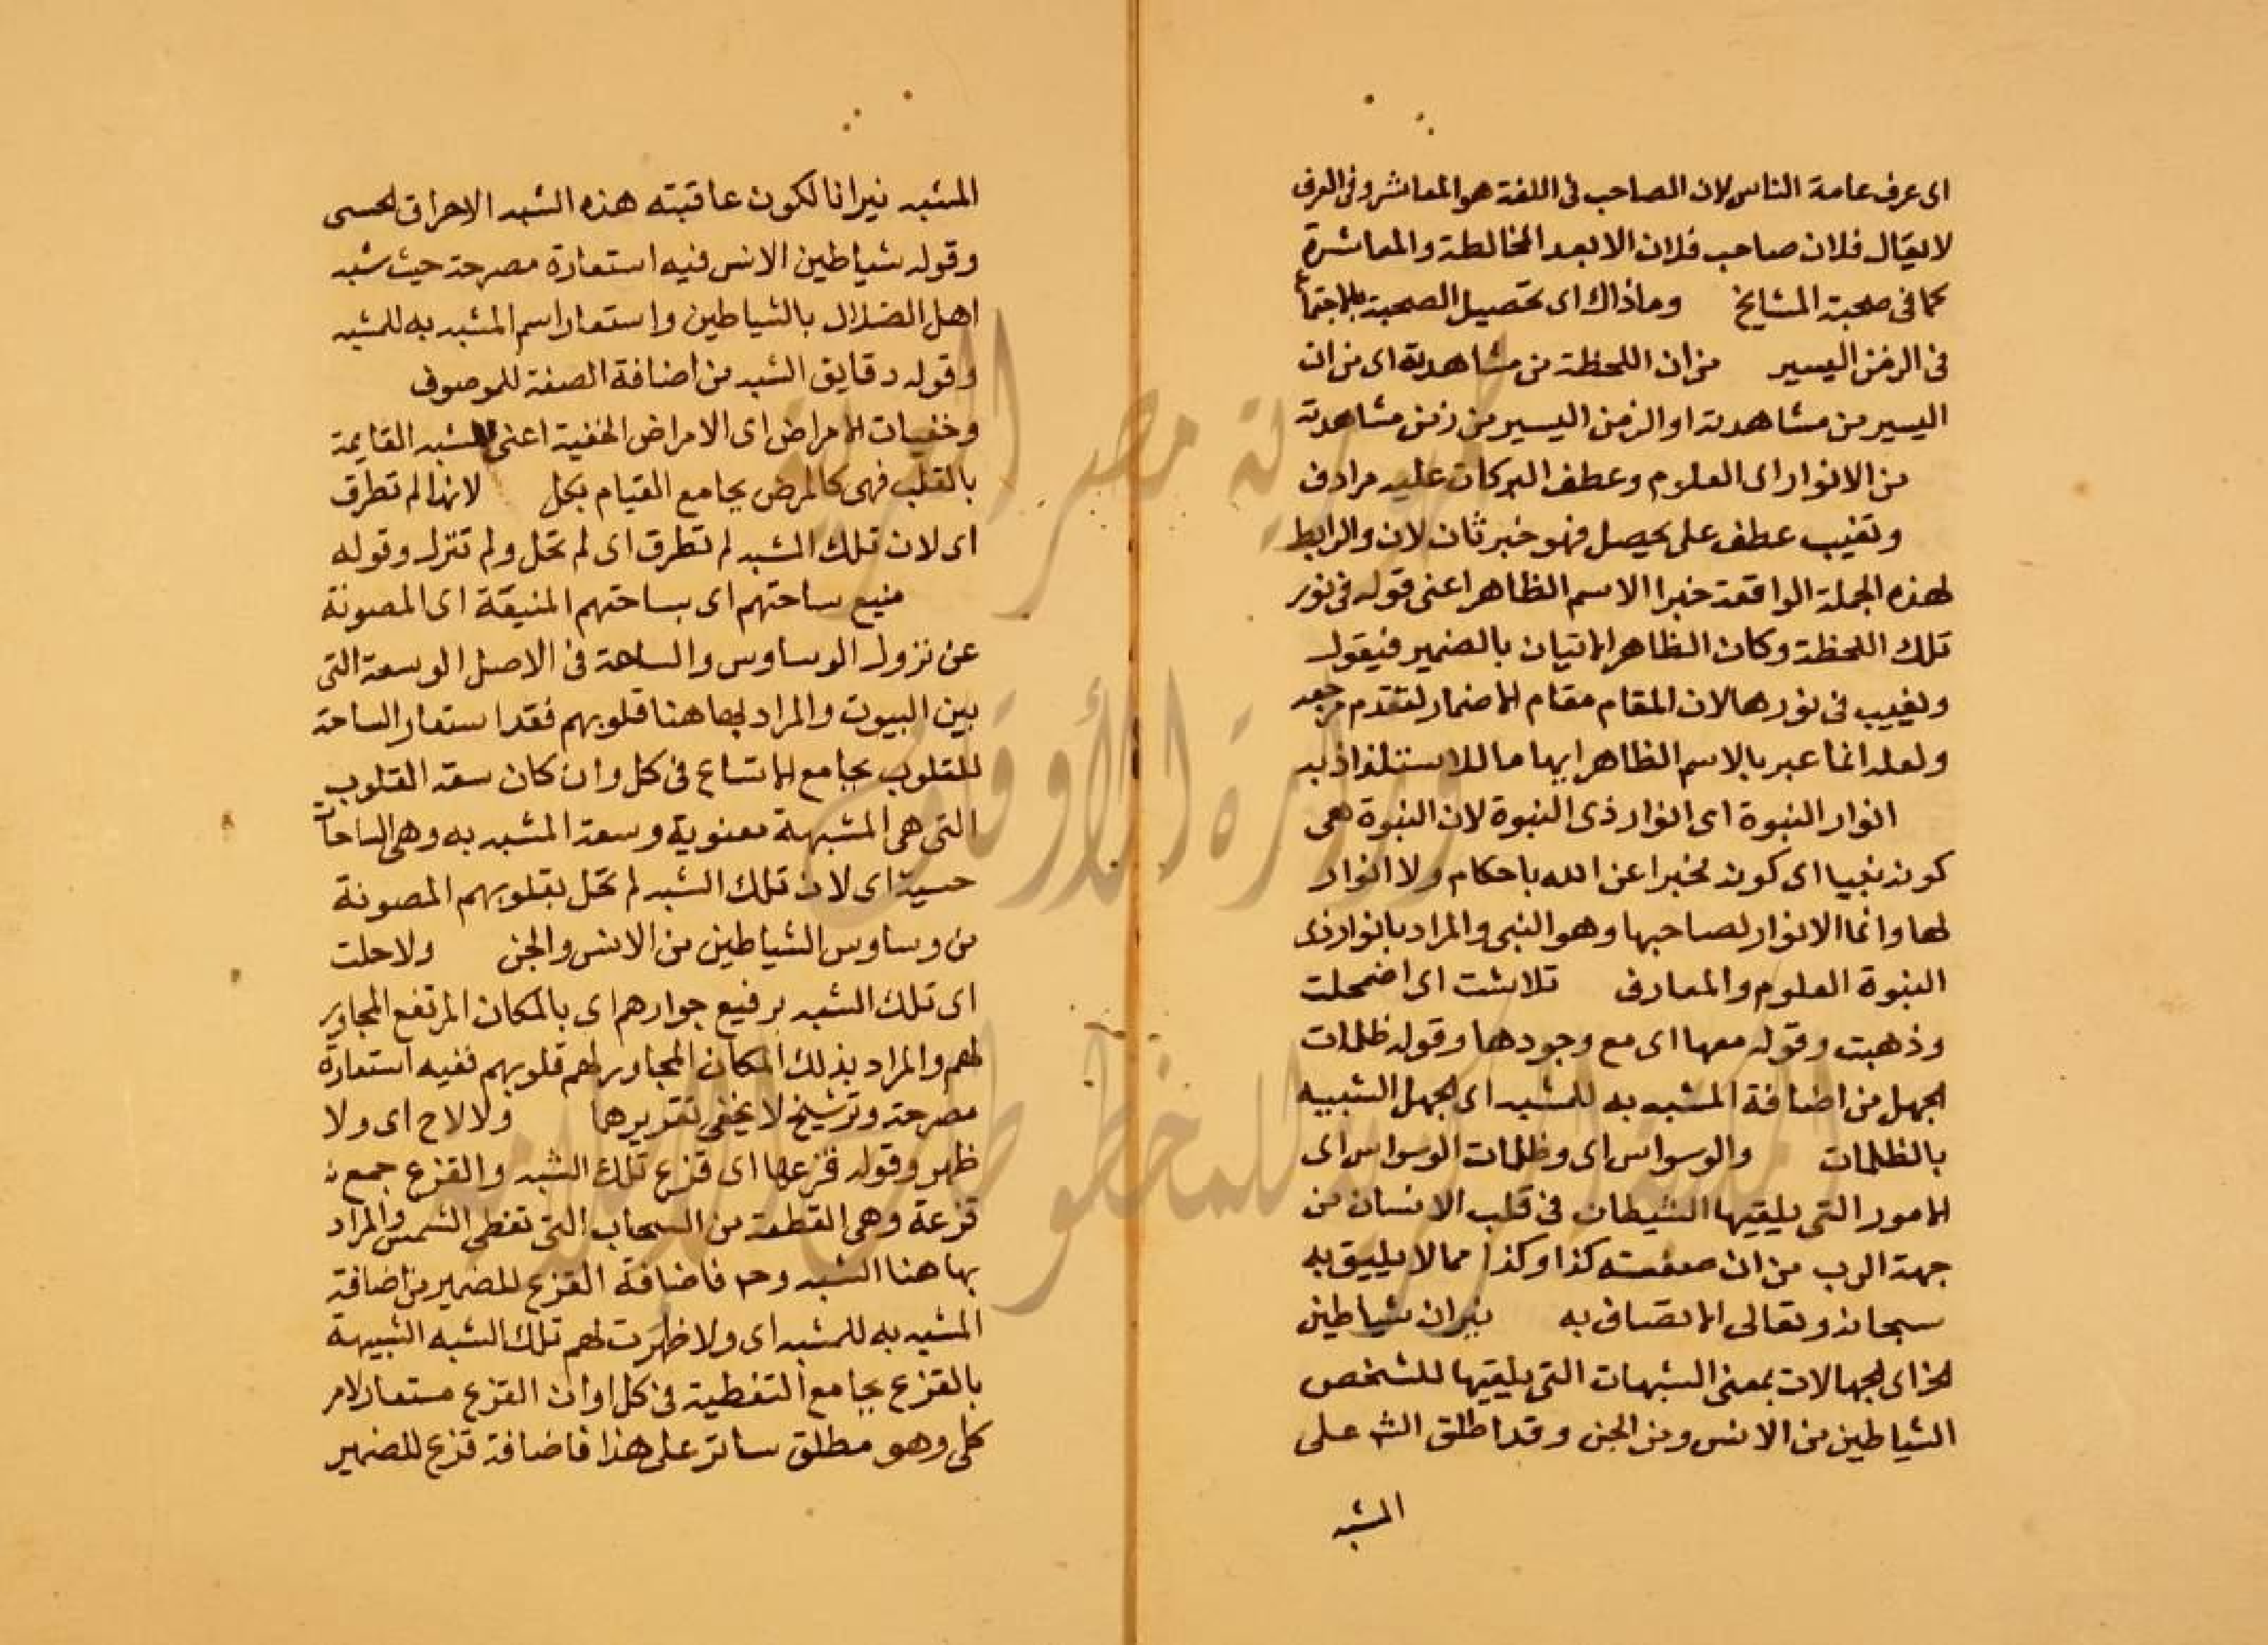 اى عرف عامة الناس لان الصاحب فى اللغة هو المعاشر وفى العرف
لا يقال فلان صاحب فلان الا بعد المخالطة والمعاشرة
كما فى صحبة المشايخ وما ذاك اى تحصيل الصحبة بالاجتماع
فى الزمن اليسير من ان اللحظة من مشاهدته اى من ان
اليسير من مشاهدته او الزمن اليسير من زمن مشاهدته
من الانوار اى العلوم وعطف البركات عليه مرادف
وتغيب عطف على يحصل فهو خبر ثان لان والرابط
لهذه الجملة الواقعة خبرا الاسم الظاهر اعنى قوله فى نور
تلك اللحظة وكان الظاهر الاتيان بالضمير فيقول
وتغيب فى نورها لان المقام مقام الاضمار لتقدم مرجعه
ولعله انما عبر بالاسم الظاهر ايهاما للاستلذاذ به
انوار النبوة اى انوار ذى النبوة لان النبوة هى
كونه نبيا اى كونه مخبرا عن الله باحكام ولا انوار
لها وانما الانوار لصاحبها وهو النبى والمراد بانوار ذى
النبوة العلوم والمعارف تلاشت اى اضمحلت
وذهبت وقوله معها اى مع وجودها وقوله ظلمات
الجهل من اضافة المشبه به للمشبه اى الجهل الشبيه
بالظلمات والوسواس اى وظلمات الوسواس اى
الامور التى يلقيها الشيطان فى قلب الانسان من
جهة الرب من ان صفته كذا وكذا مما لا يليق به
سبحانه وتعالى الاتصاف به نيران شياطين
الخ اى الجهالات بمعنى الشبهات التى يلقيها للشخص
الشياطين من الانس ومن الجن وقد اطلق الش على
المشبه
المشبه نيرانا لكون عاقبته هذه الشبه الاحراق الحسى
وقوله شياطين الانس فيه استعارة مصرحة حيث شبه
اهل الضلال بالشياطين واستعار اسم المشبه به للمشبه
وقوله دقايق الشبه من اضافة الصفة للموصوف
وخفيات الامراض اى الامراض الخفية اعنى الشبه القايمة
بالقلب فهى كالمرض بجامع القيام بكل لانها لم تطرق
اى لان تلك الشبه لم تطرق اى لم تحل ولم تنزل وقوله
منيع ساحتهم اى بساحتهم المنيعة اى المصونة
عن نزول الوساوس والساحة فى الاصل الوسعة التى
بين البيوت والمراد بها هنا قلوبهم فقد استعار الساحة
للقلوب بجامع الاتساع فى كل وان كان سعة القلوب
التى هى المشبهة معنوية وسعة المشبه به وهى الساحات
حسية اى لان تلك الشبه لم تحل بقلوبهم المصونة
من وساوس الشياطين من الانس والجن ولا حلت
اى تلك الشبه برفيع جوارهم اى بالمكان المرتفع المجاور
لهم والمراد بذلك المكان المجاور لهم قلوبهم ففيه استعارة
مصرحة وترشيخ لا يخفى تقريرها ولا لاح اى ولا
ظهر وقوله قزعها اى قزع تلك الشبه والقزع جمع
قزعة وهى القطعة من السحاب التى تغطى الشمس والمراد
بها هنا الشبه وح فاضافة القزع للضمير من اضافة
المشبه به للمشبه اى ولا ظهرت لهم تلك الشبه الشبيهة
بالقزع بجامع التغطية فى كل او ان القزع مستعار لامر
كلى وهو مطلق ساتر على هذا فاضافة قزع للضمير